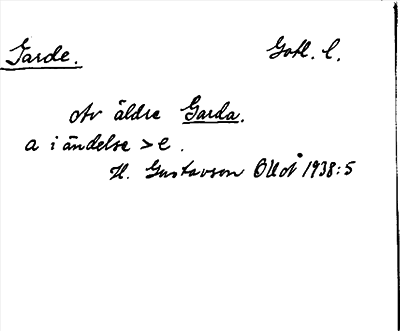 Garde. Gotl. l.
av äldre Garda.
a i ändelse > e.
H. Gustavson 1938:5